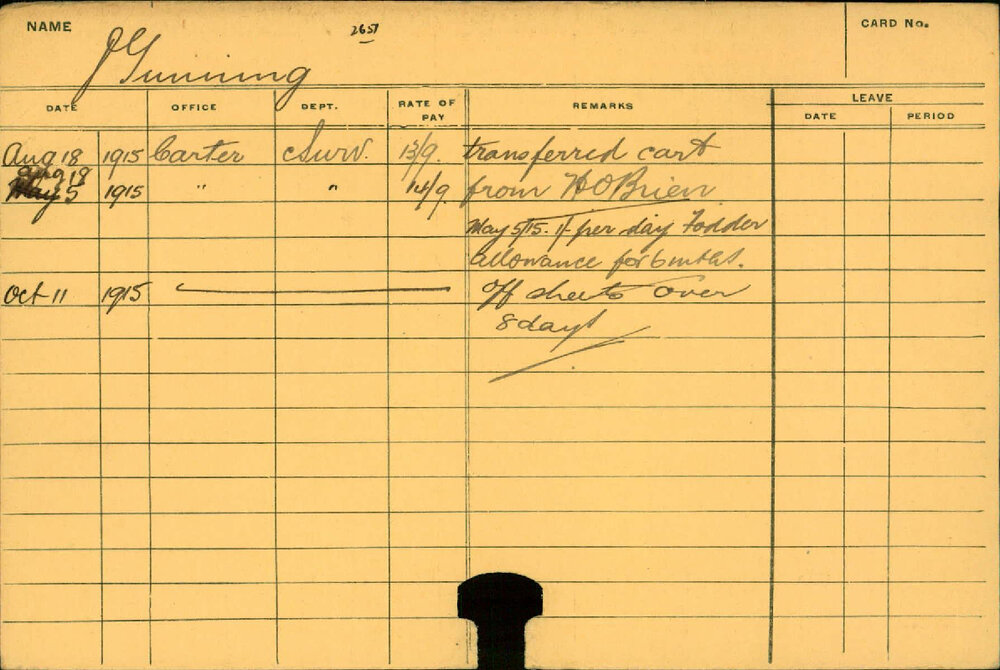 NAME 2651 CARD No.
J Gunning
DATE OFFICE DEPT. RATE OF PAY REMARKS LEAVE
DATE PERIOD
Aug 18 1915 Carter Surv. 13/9. transferred cart
Aug 18
May 5 1915 " " 14/9. from H O'Brien
May 5/15. 1/- per day Fodder
allowance for 6 mths.
Oct 11 1915 off sheets over
8 days